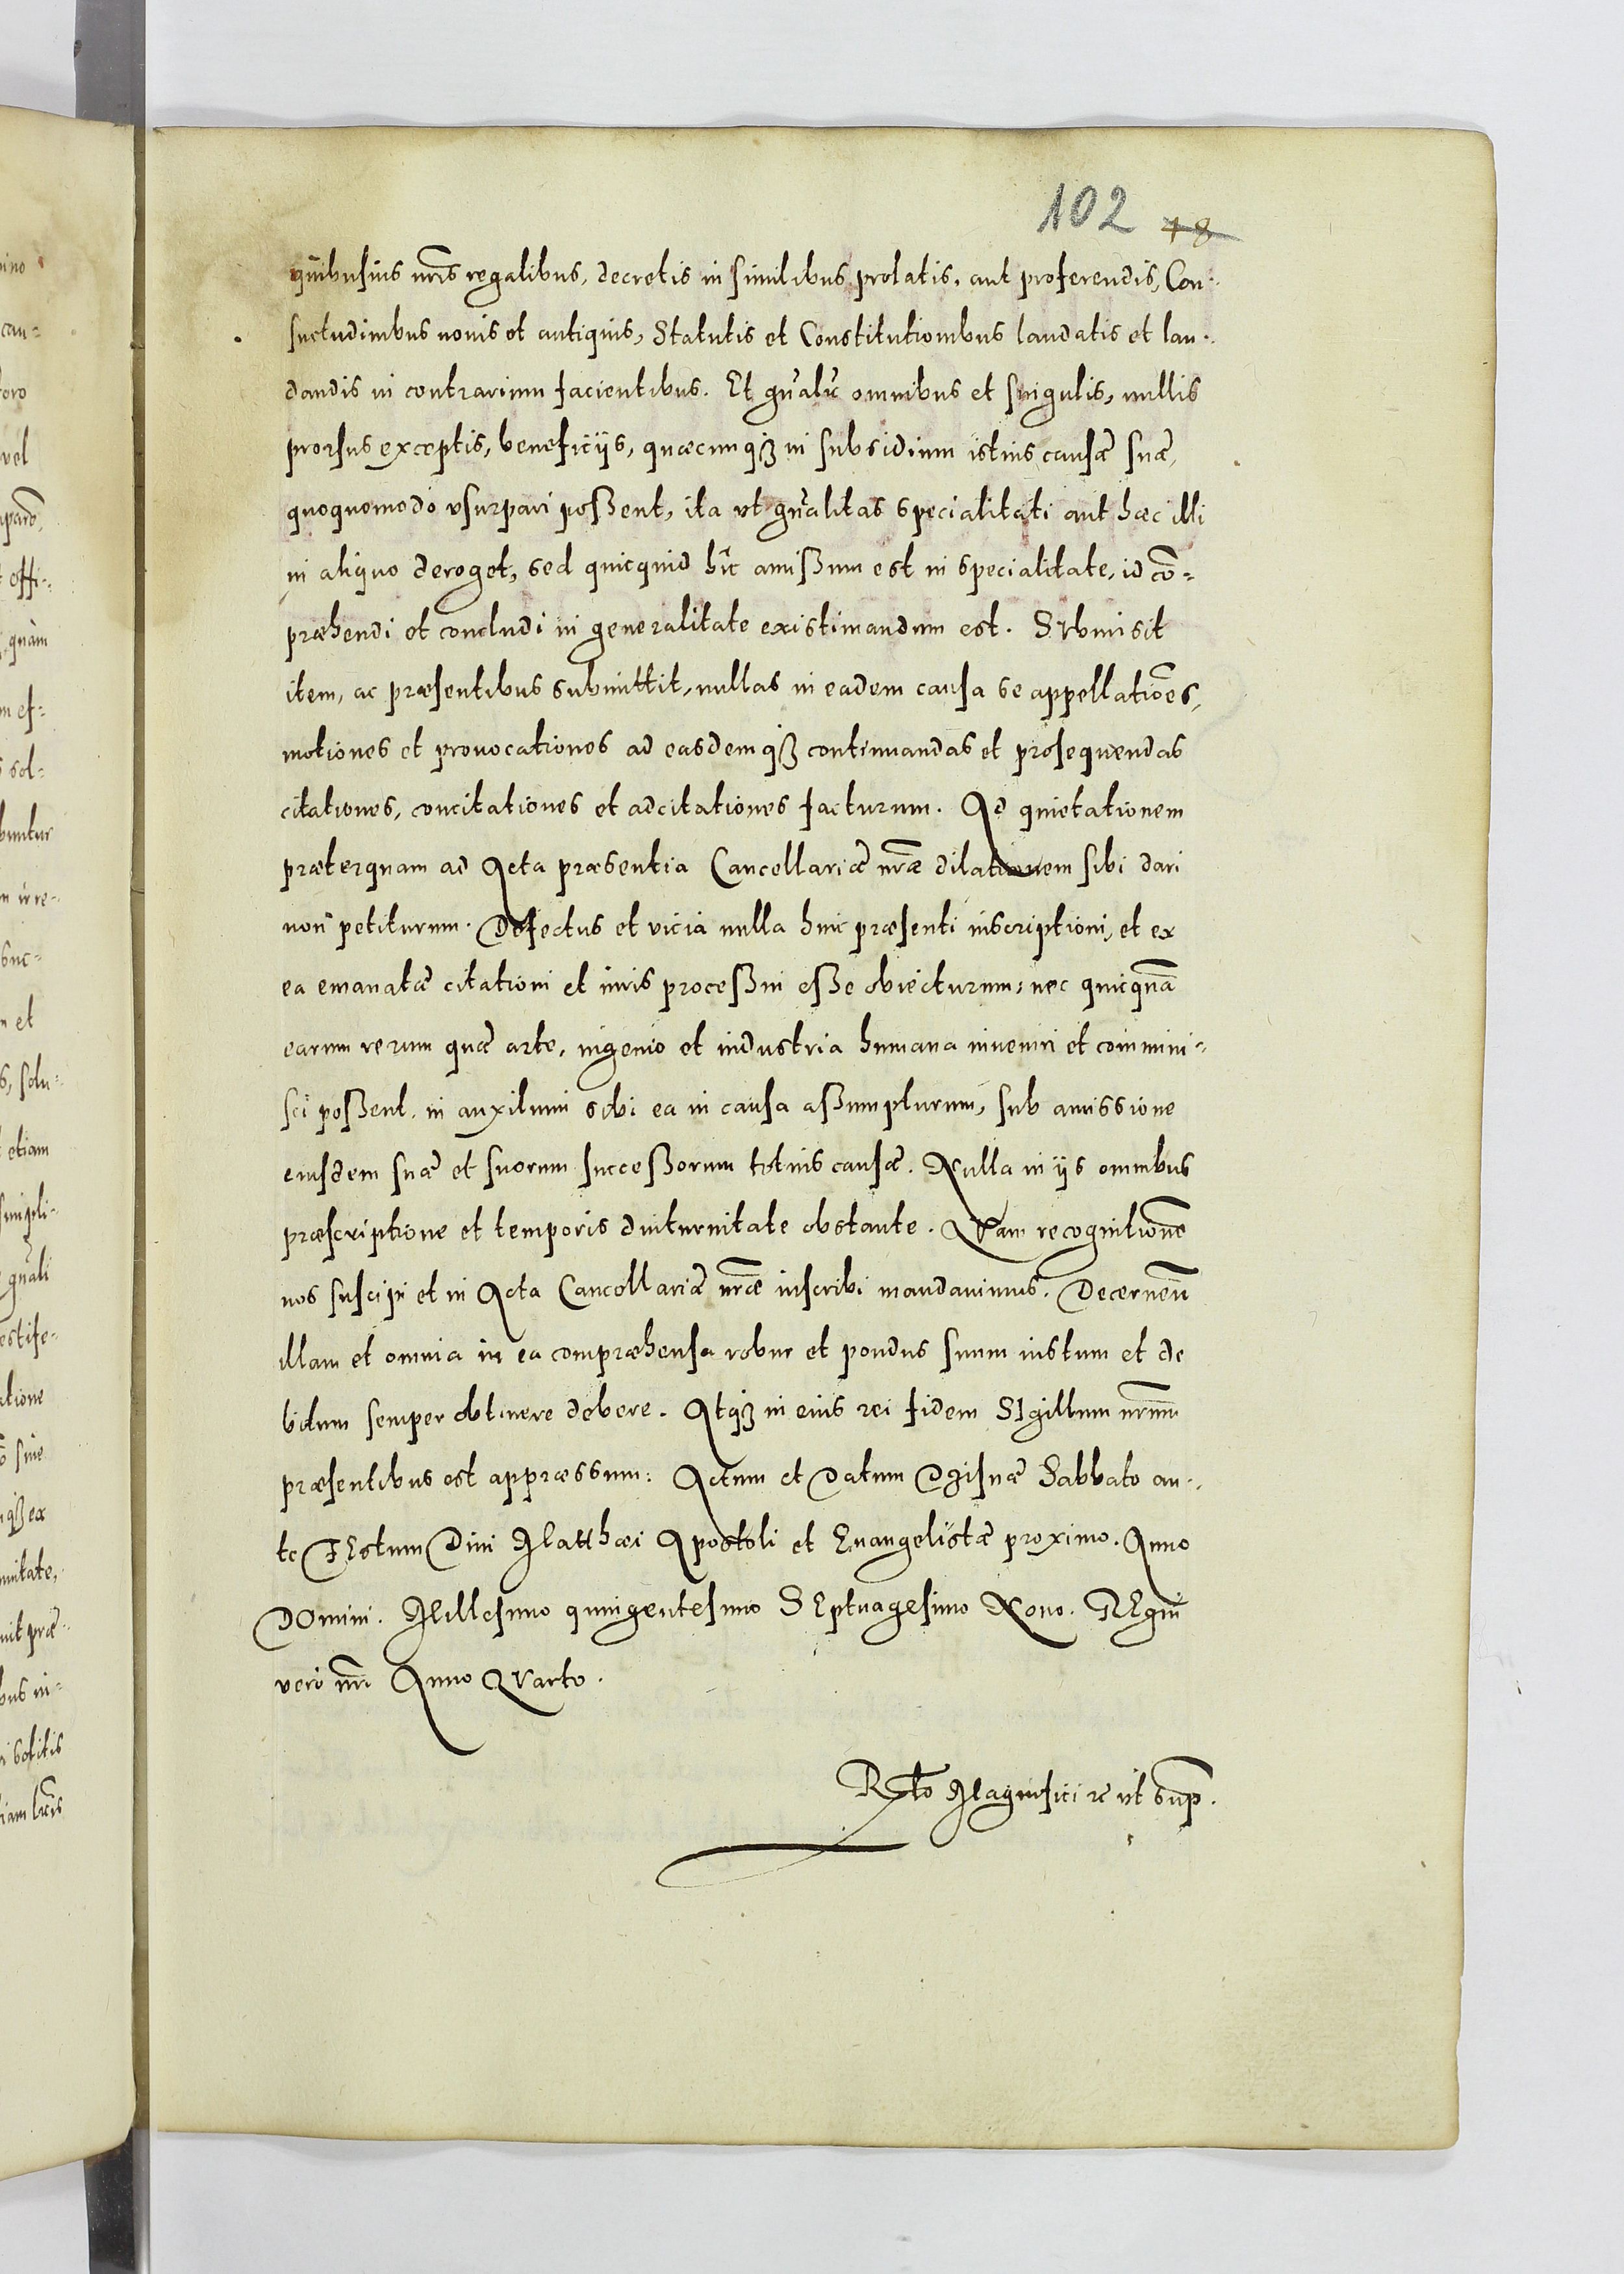 102 48
quibusuis nris regalibus, decretis in similibus prolatis, aut proferendis, Con-
suetudinibus nouis et antiquis, Statutis et Constitutionibus laudatis et lau-
dandis in contrarium facientibus. Et gnalr omnibus et singulis, nullis
prorsus exceptis, beneficijs, quæcunqз in subsidium istius causæ suæ,
quoquomodo vsurpari possent, ita vt gnalitas specialitati aut hæc illi
in aliquo deroget, sed quicquid hîc amissum est in specialitate, id cō-
præhendi et concludi in generalitate existimandum est. SVbmisit
item, ac præsentibus submittit, nullas in eadem causa se appellatiōes,
motiones et prouocationes ad easdemqз continuandas et prosequendas
citationes, concitationes et adcitationes facturum. Ad quietationem
præterquam ad Acta præsentia Cancellariæ nræ dilationem sibi dari
non petiturum. Defectus et vicia nulla huic præsenti inscriptioni, et ex
ea emanatæ citationi et iuris processui esse obiecturum, nec quicquā
earum rerum quæ arte, ingenio et industria humana inueniri et commini-
sci possent, in auxilium sibi ea in causa assumpturum, sub amissione
eiusdem suæ et suorum successorum totius causæ. Nulla in ijs omnibus
præscriptione et temporis diuturnitate obstante. Quam recognitionē
nos suscipi et in Acta Cancellariæ nræ inscribi mandauimus. Decernen
illam et omnia in ea compræhensa robur et pondus suum iustum et de
bitum semper obtinere debere. Atqз in eius rei fidem SIgillum nrmm
præsentibus est appræssum: Actum et Datum Disnæ Sabbato an-
te FEstum Diui Matthæi Apostoli et Euangelistæ proximo. Anno
DOmini. Millesimo quingentesimo SEptuagesimo Nono. REgni
vero nri Anno QVarto.
Rlto Magnifici &c ut supr.